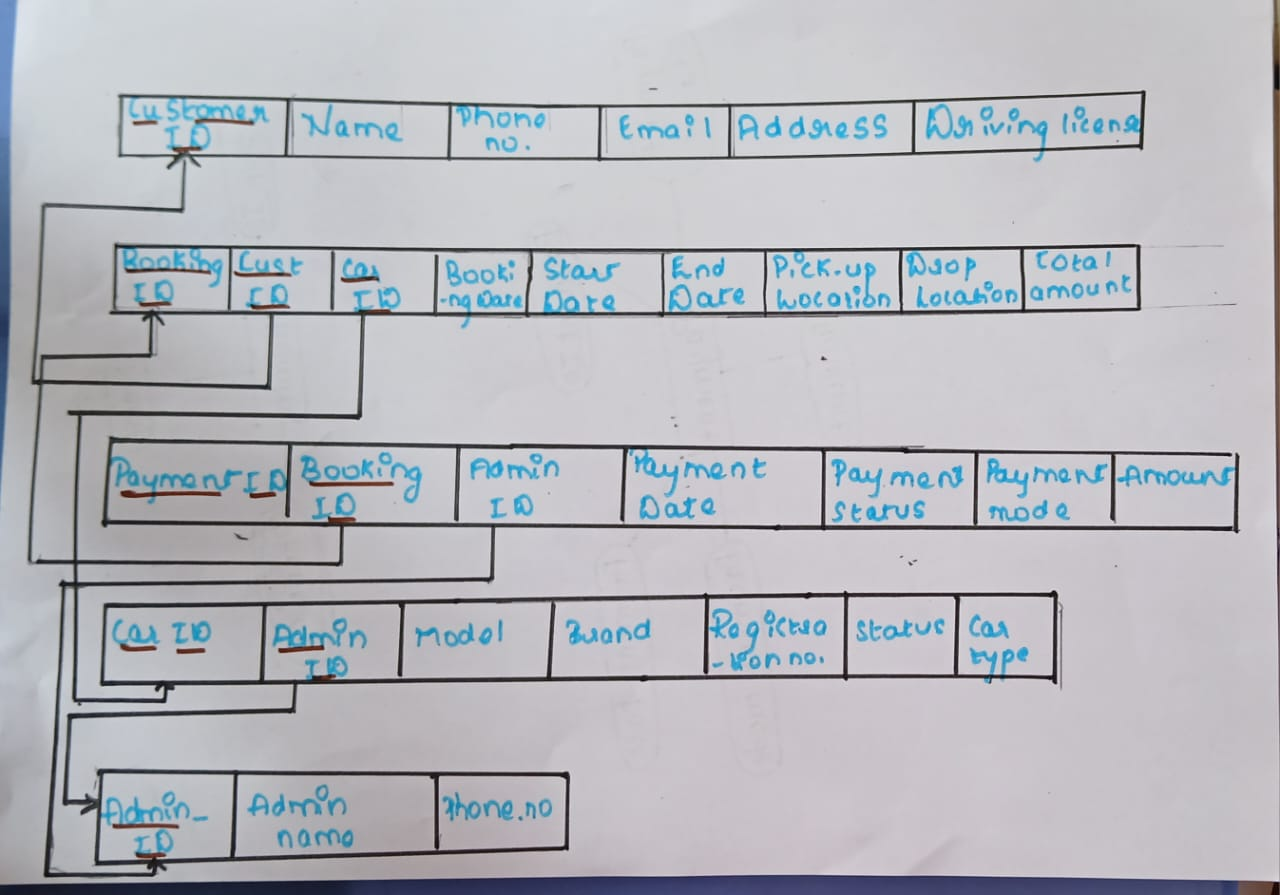 Customer ID
Name
Phone no.
Email
Address
Driving license
Booking ID
Cust ID
Car ID
Booki-ng Date
Start Date
End Date
Pick-up Location
Drop Location
Total amount
Payment ID
Booking ID
Admin ID
Payment Date
Payment Status
Payment mode
Amount
Car ID
Admin ID
Model
Brand
Registra-tion no.
Status
Car type
Admin_ID
Admin name
Phone.no